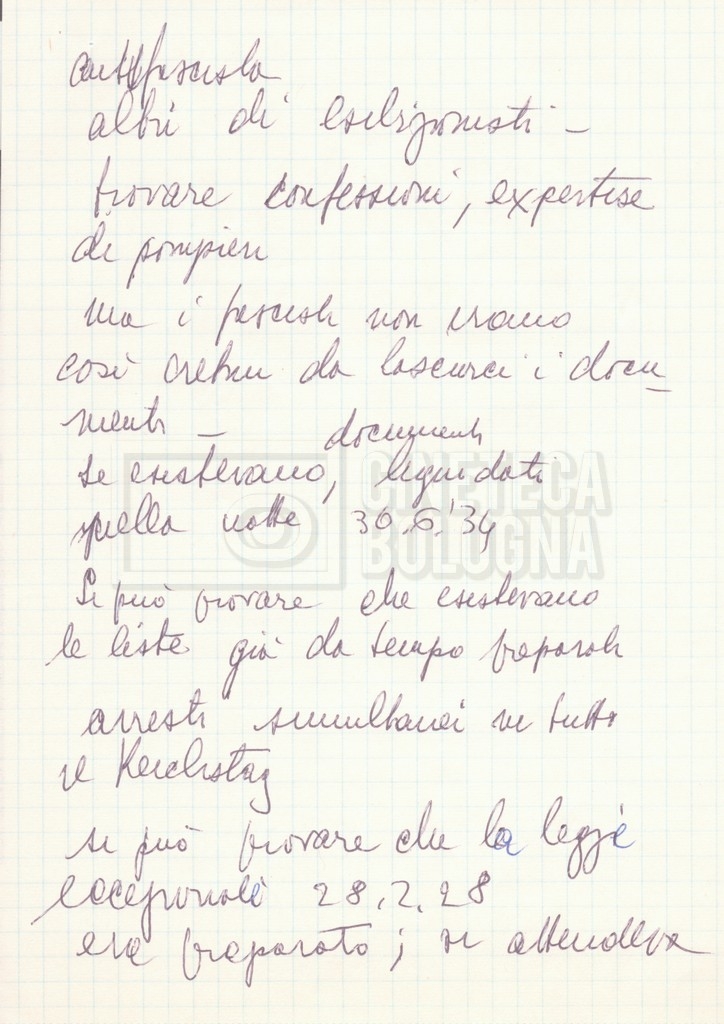 antifascista
altri di esibizionisti –
trovare confessioni, expertise
di pompieri
ma i fascisti non erano
così cretini da lasciarci i docu–
menti –
documenti
se esistevano, liquidati
quella notte 30.6.'34
Si può provare che esistevano
le liste già da tempo preparate
arresti simultanei in tutto
il Reichstag
si può provare che la legge
eccezionale 28.2.28
era preparata; si attendeva
CINETECA
BOLOGNA